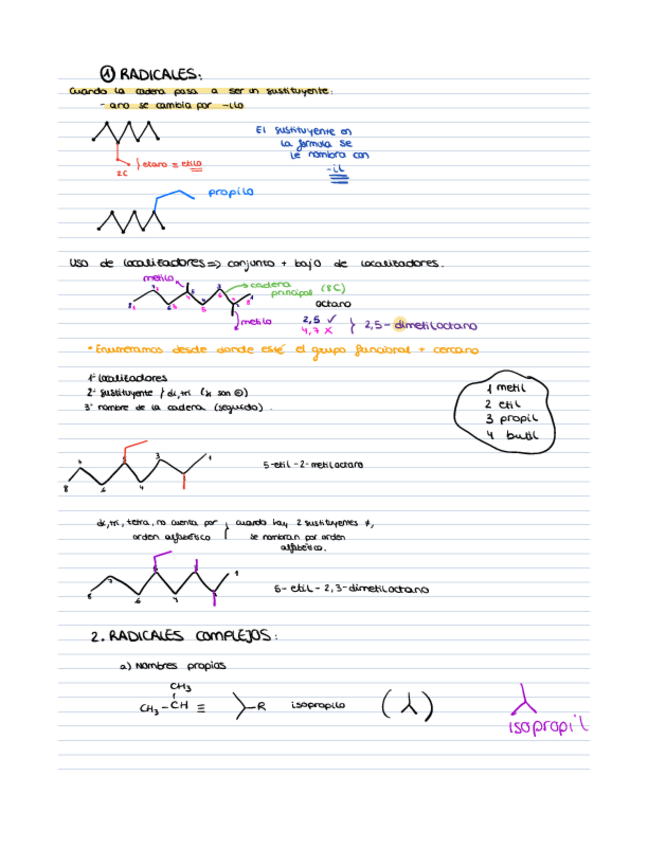 ① RADICALES:
Cuando la cadena pasa a ser un sustituyente:
- ano se cambia por -ilo
El sustituyente en
la formula se
le nombra con
-il
etano = etilo
2C
propilo
Uso de localizadores => conjunto + bajo de localizadores.
metilo
cadena
principal (8C)
octano
metilo
2,5 ✓
4,7 X
} 2,5-dimetiloctano
* Enumeramos desde donde esté el grupo funcional + cercano
1º localizadores
2º sustituyente / di, tri (si son =)
3º nombre de la cadena (seguido).
1 metil
2 etil
3 propil
4 butil
5-etil-2-metiloctano
di, tri, tetra, no cuenta por } cuando hay 2 sustituyentes ≠,
orden alfabético
se nombran por orden
alfabético.
5-etil-2,3-dimetiloctano
2. RADICALES COMPLEJOS:
a) Nombres propios
CH₃
CH₃-CH ≡
R isopropilo
isopropil